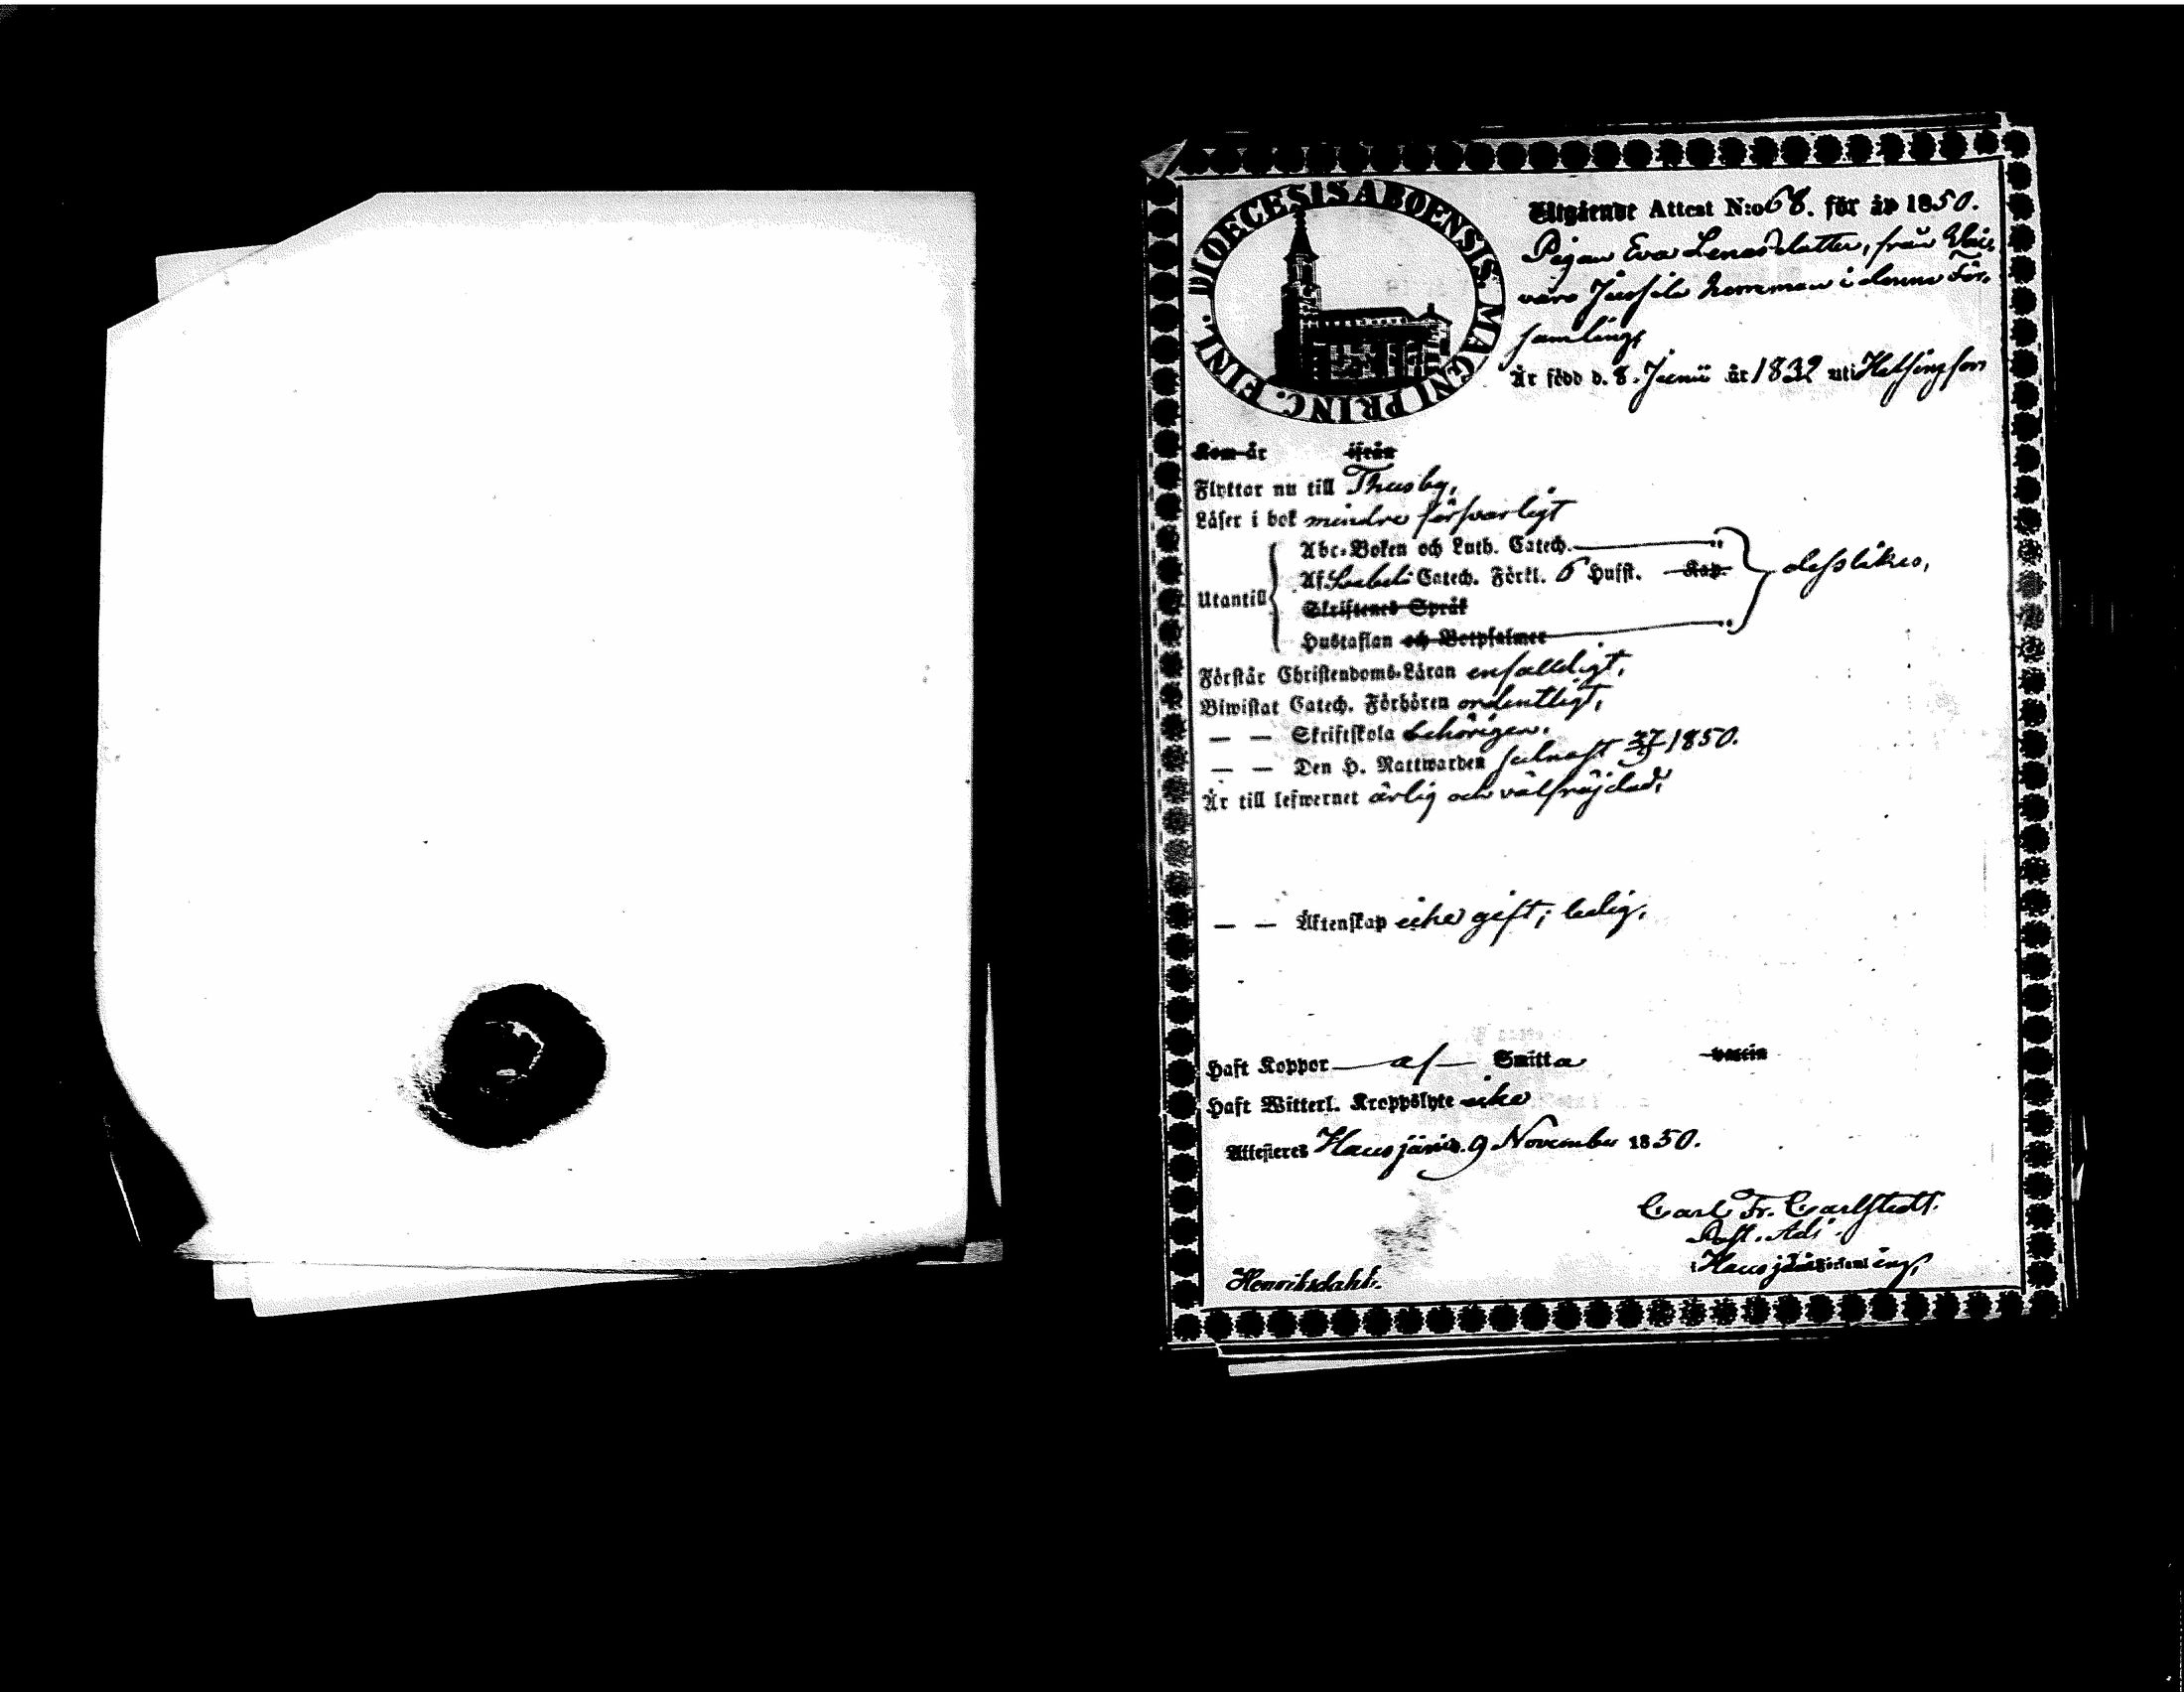 DIOECESIS ABOENSIS. MAGNI PRINC. FINL.
Utgående Attest N:o 68. för år 1850.
Pigan Eva Lenasdatter, från
Jussila hemman i denna För,
samling,
Är född d. 8. Junii år 1832 uti Helsingfors
Kom år ifrån
Flyttar nu till Thusby,
Läser i bok mindre försvarligt
Abc-Boken och Luth. Catech.
Af Catech. Förkl. 6 Hufst. Kap. desslikes,
Utantill
Skriftenes Språk
Hustaflan och Botpsalmer
Förstår Christendoms-Läran enfaldigt,
Biwistat Catech. Förhören ordentligt,
— — Skriftskola behörigen,
— — Den H. Nattwarden sednast 1850.
Är till lefwernet ärlig och välfräjdad,
— — Äktenskap icke gift; ledig,
Haft Koppor — af — Smitta vaccin
Haft Witterl. Kroppslyte icke
Attesteres Hausjärvi d. 9 November 1850.
Carl Fr. Carlstedt.
Past. Adj.
i Hausjärvi Församling,
Henriksdahl.